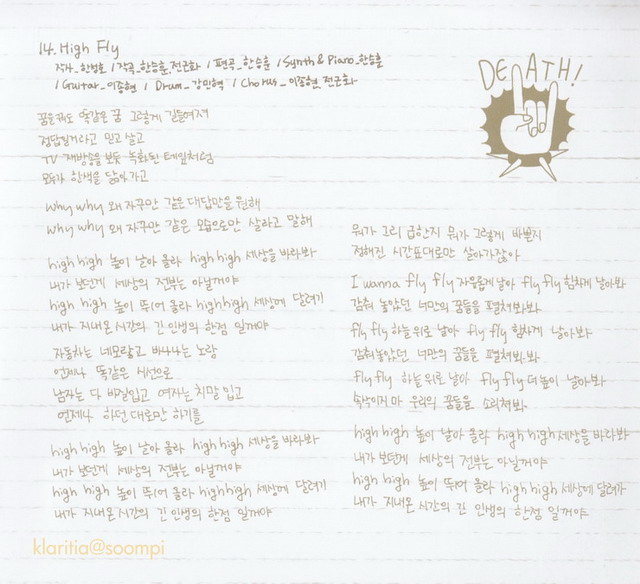 14. High Fly
작사_한성호 / 작곡_한승훈, 전근화 / 편곡_한승훈 / Synth & Piano_한승훈
/ Guitar_이종현 / Drum_강민혁 / Chorus_이종현, 전근화
DEATH!
꿈을 꿔도 똑같은 꿈 그렇게 길들여져
정답일거라고 믿고 살고
TV 재방송을 보듯 녹화된 테잎처럼
모두가 한색을 닮아가고
why why 왜 자꾸만 같은 대답만을 원해
why why 왜 자꾸만 같은 모습으로만 살라고 말해
high high 높이 날아 올라 high high 세상을 바라봐
내가 보던게 세상의 전부는 아닐꺼야
high high 높이 뛰어 올라 high high 세상에 달려가
내가 지내온 시간의 긴 인생의 한점 일꺼야
자동차는 네모랗고 바나나는 노랑
언제나 똑같은 시선으로
남자는 다 바질입고 여자는 치말 입고
언제나 하던 대로만 하기를
high high 높이 날아 올라 high high 세상을 바라봐
내가 보던게 세상의 전부는 아닐꺼야
high high 높이 뛰어 올라 high high 세상에 달려가
내가 지내온 시간의 긴 인생의 한점 일꺼야
뭐가 그리 급한지 뭐가 그렇게 바쁜지
정해진 시간표대로만 살아가잖아
I wanna fly fly 자유롭게 날아 fly fly 힘차게 날아봐
감춰 놓았던 너만의 꿈들을 펼쳐봐 봐
fly fly 하늘 위로 날아 fly fly 힘차게 날아봐
감춰놓았던 너만의 꿈들을 펼쳐봐. 봐
fly fly 하늘 위로 날아 fly fly 더 높이 날아봐
속삭이지마 우리의 꿈들을 소리쳐봐.
high high 높이 날아 올라 high high 세상을 바라봐
내가 보던게 세상의 전부는 아닐꺼야
high high 높이 뛰어 올라 high high 세상에 달려가
내가 지내온 시간의 긴 인생의 한점 일꺼야
klaritia@soompi